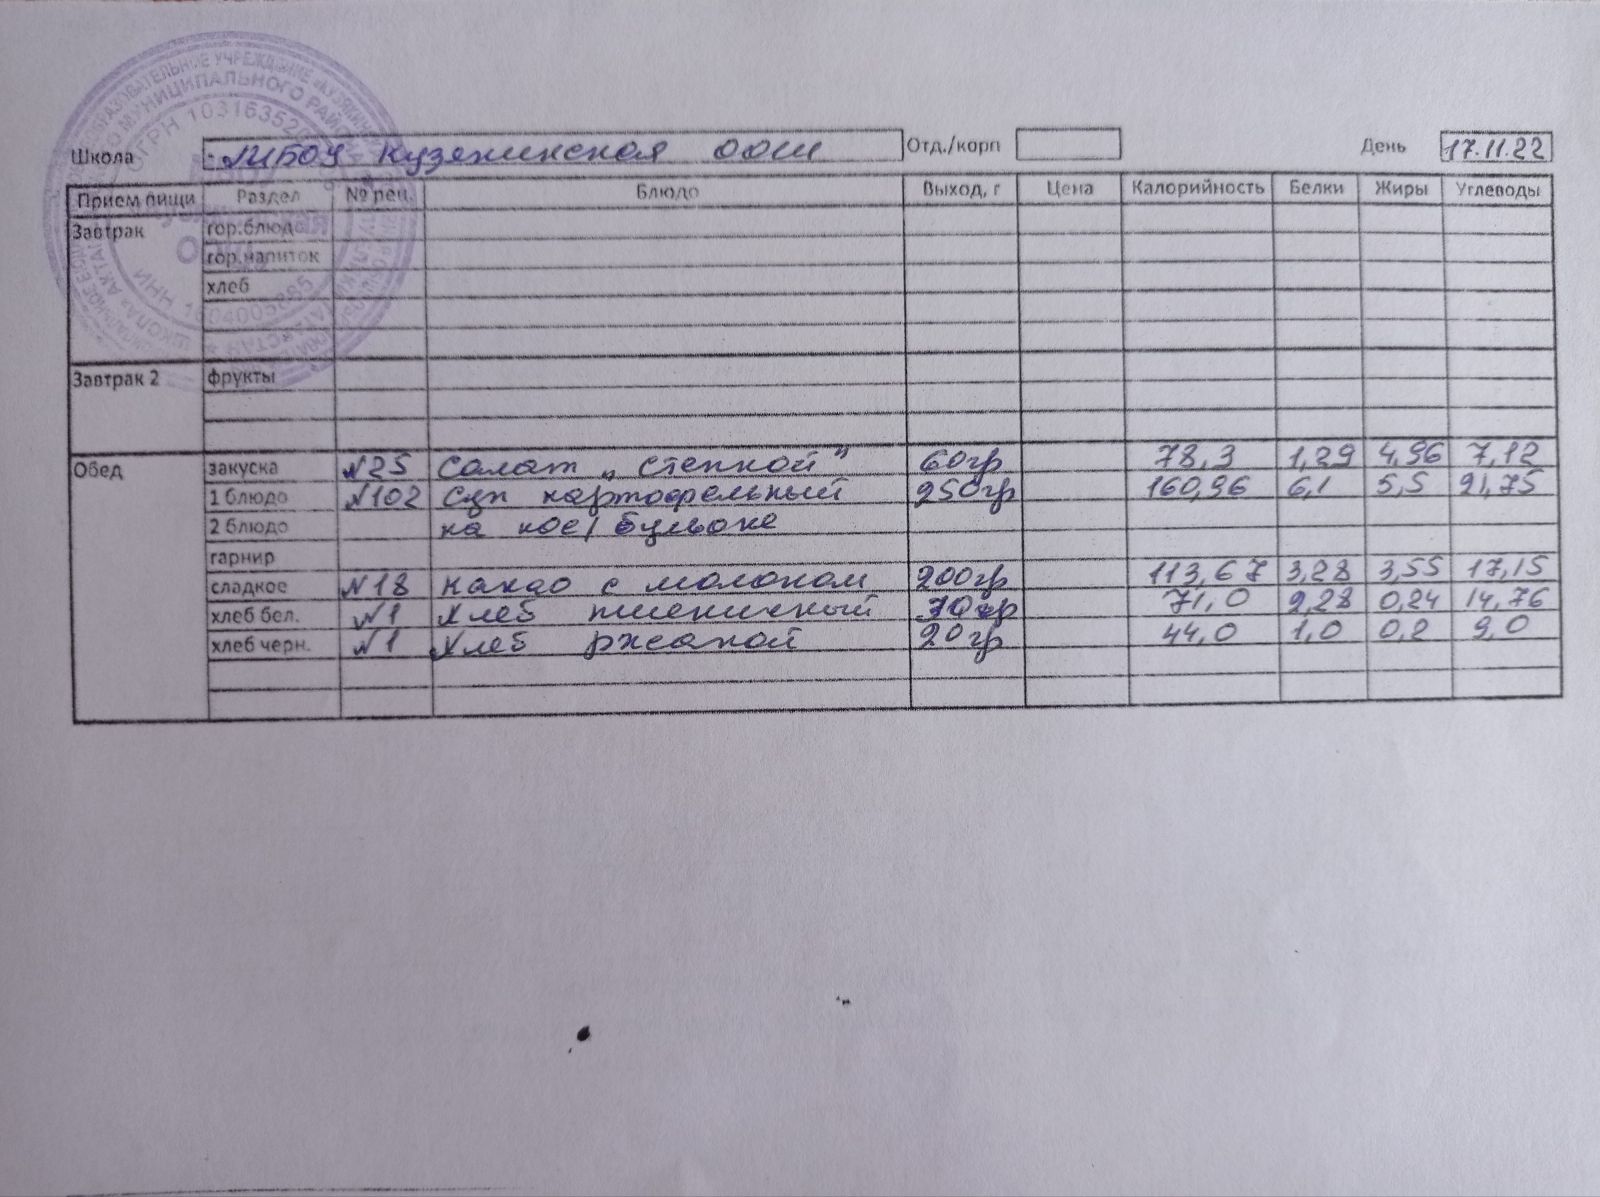 Школа МБОУ Кузякинская ООШ Отд./корп День 17.11.22
Прием пищи Раздел № рец. Блюдо Выход, г Цена Калорийность Белки Жиры Углеводы
Завтрак гор.блюдо
гор.напиток
хлеб
Завтрак 2 фрукты
Обед закуска №25 Салат „Степной" 60гр 78,3 1,29 4,96 7,12
1 блюдо №102 Суп картофельный 250гр 160,96 6,1 5,5 21,75
2 блюдо на кос/бульоне
гарнир
сладкое №18 какао с молоком 200гр 113,67 3,28 3,55 17,15
хлеб бел. №1 Хлеб пшеничный 30гр 71,0 2,28 0,24 14,76
хлеб черн. №1 Хлеб ржаной 20гр 44,0 1,0 0,2 9,0